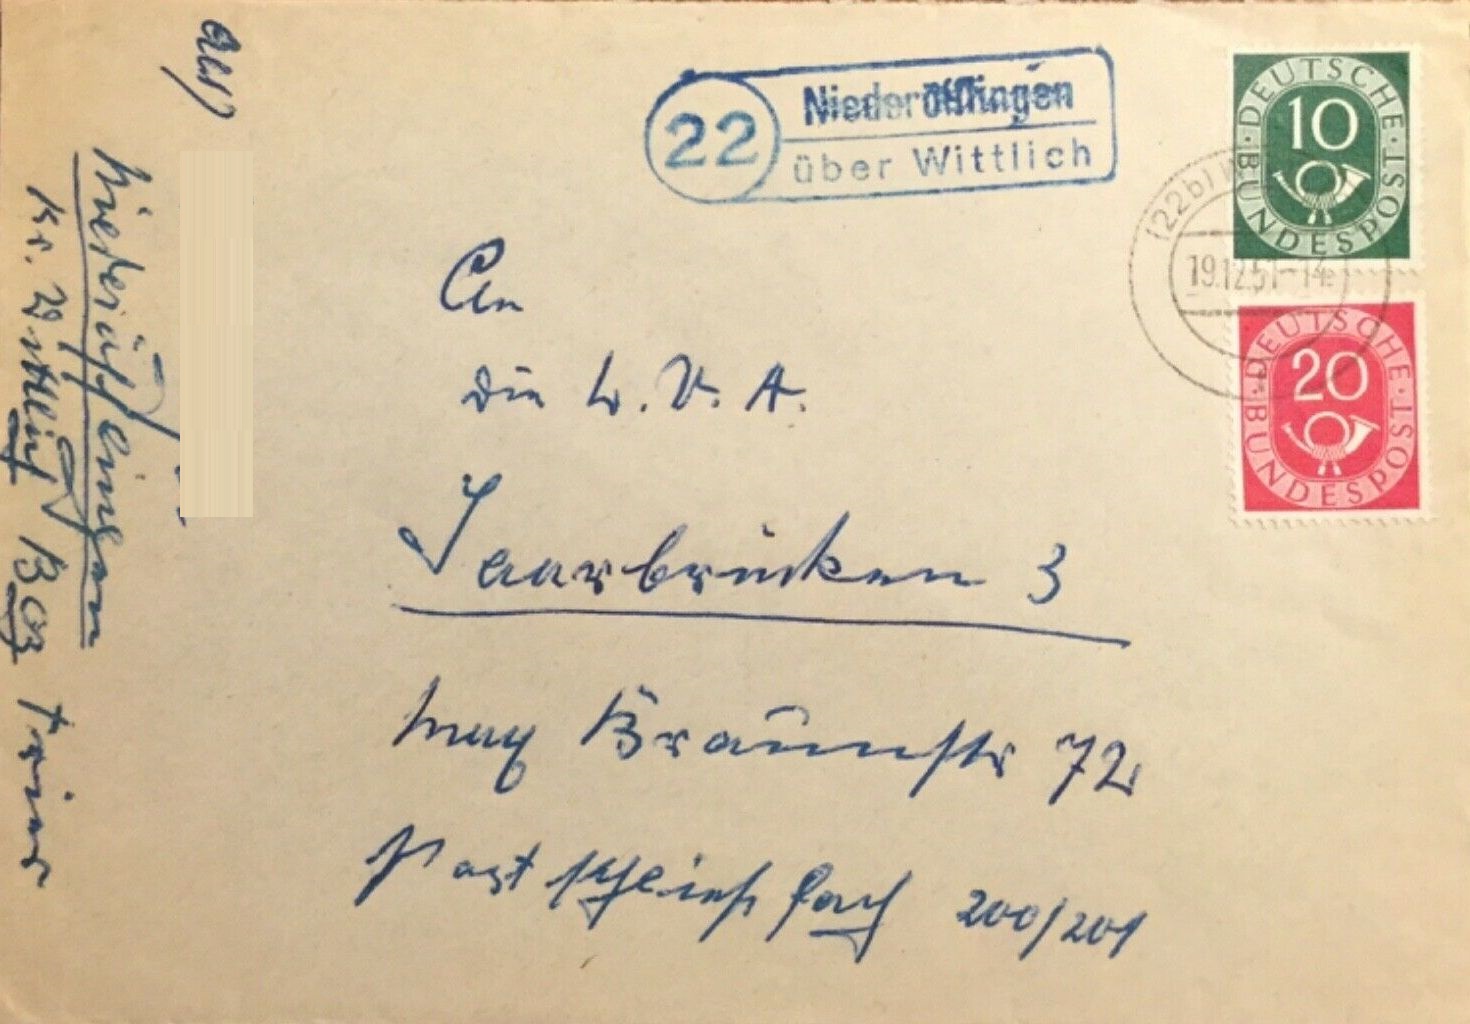 22
Niederöfflingen
über Wittlich
DEUTSCHE
10
BUNDESPOST
(22b)
19.12.51-14
DEUTSCHE
20
BUNDESPOST
An
die L.V.A.
Saarbrücken 3
Max Braunstr 72
Post schließfach 200/201
Niederöfflingen
Kr. Wittlich Bez Trier